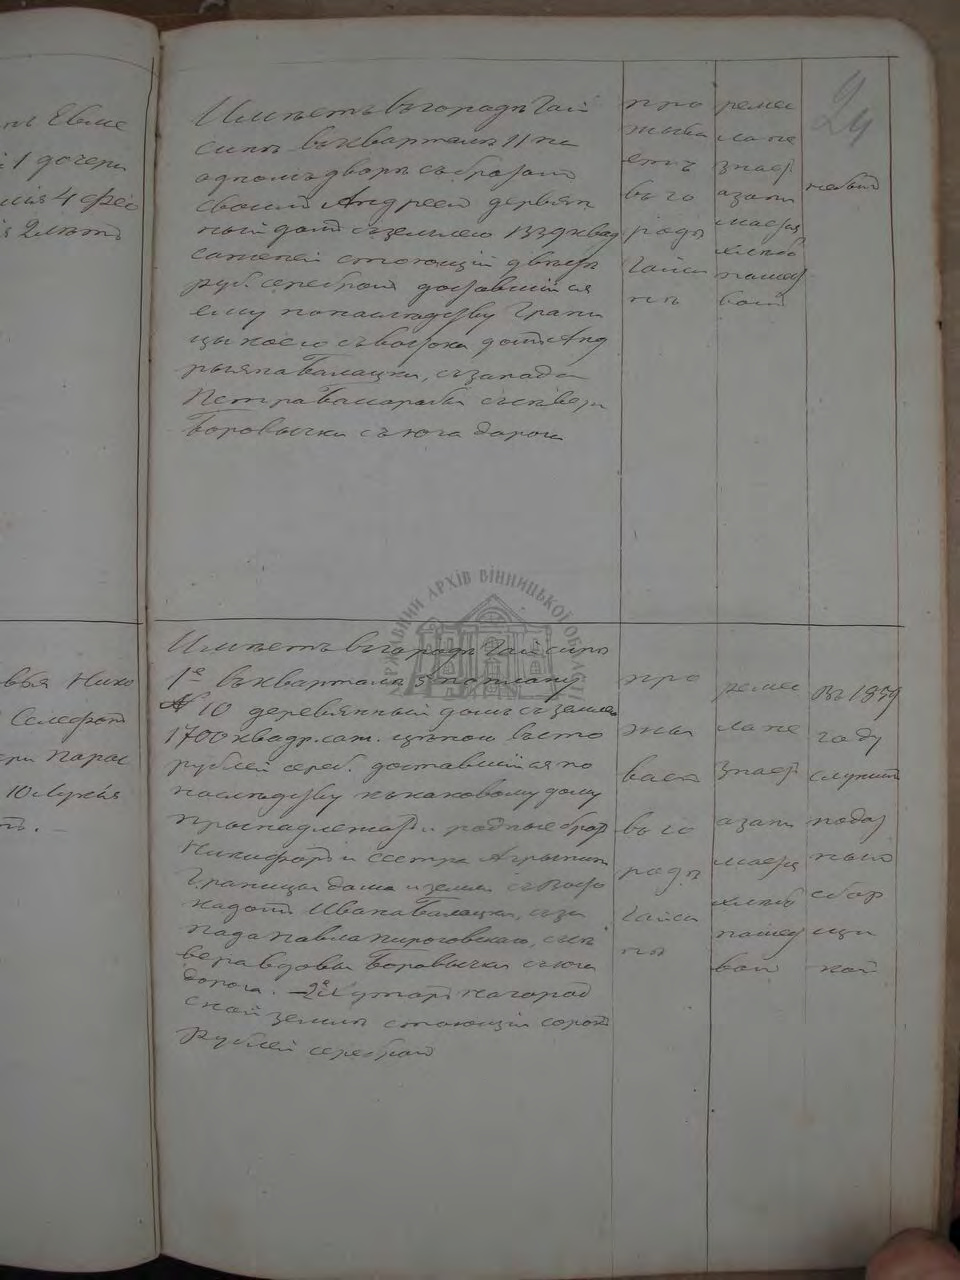 24
нъ Евме
1 дочери
4 Фео
2 лѣтъ
Имѣетъ въ городѣ Гай
синѣ въ квартале 11 на
одномъ дворѣ съ братом
своим Андреем деревян
ный дом съ землею 1339 квад
саженей стоющій двѣсти
руб. серебром доставшійся
ему по наслѣдству Грани
цы коего съ востока дом Анд
рыяна Балацки, съ запада
Петра Басараба съ севера
Боровички съ юга дорога
про
жива
етъ
въ го
родѣ
Гайси
нѣ
ремес
ла не
знает
а зани
мается
хлебо
пашест
вом
небыл
вья Нико
Селефон
ери Парас
10 Лукья
тъ. —
Имѣетъ въ городѣ Гайсинѣ
1е въ квартале 5 по плану
№ 10 деревянный домъ съ землею
1700 квадр. саж. цѣною въ сто
рублей сереб. доставшійся по
наслѣдству к каковому дому
принадлежат и родные брат
Никифор и сестра Агрыпина
Границы дома и земли съ Восто
ка дом Ивана Балацки, съ за
пада Павла Пироговскаго, съ се
вера вдовы Боровички съ юга
дорога. 2е Хутор на город
ской земле стоющій сорок
Рублей серебром
про
жи
вает
въ го
родѣ
Гайси
нѣ
ремес
ла не
знает
а зани
мается
хлебо
пашест
вом
Въ 1859
году
служит
подат
ным
сбор
щи
ком
ДЕРЖАВНИЙ АРХІВ ВІННИЦЬКОЇ ОБЛАСТІ